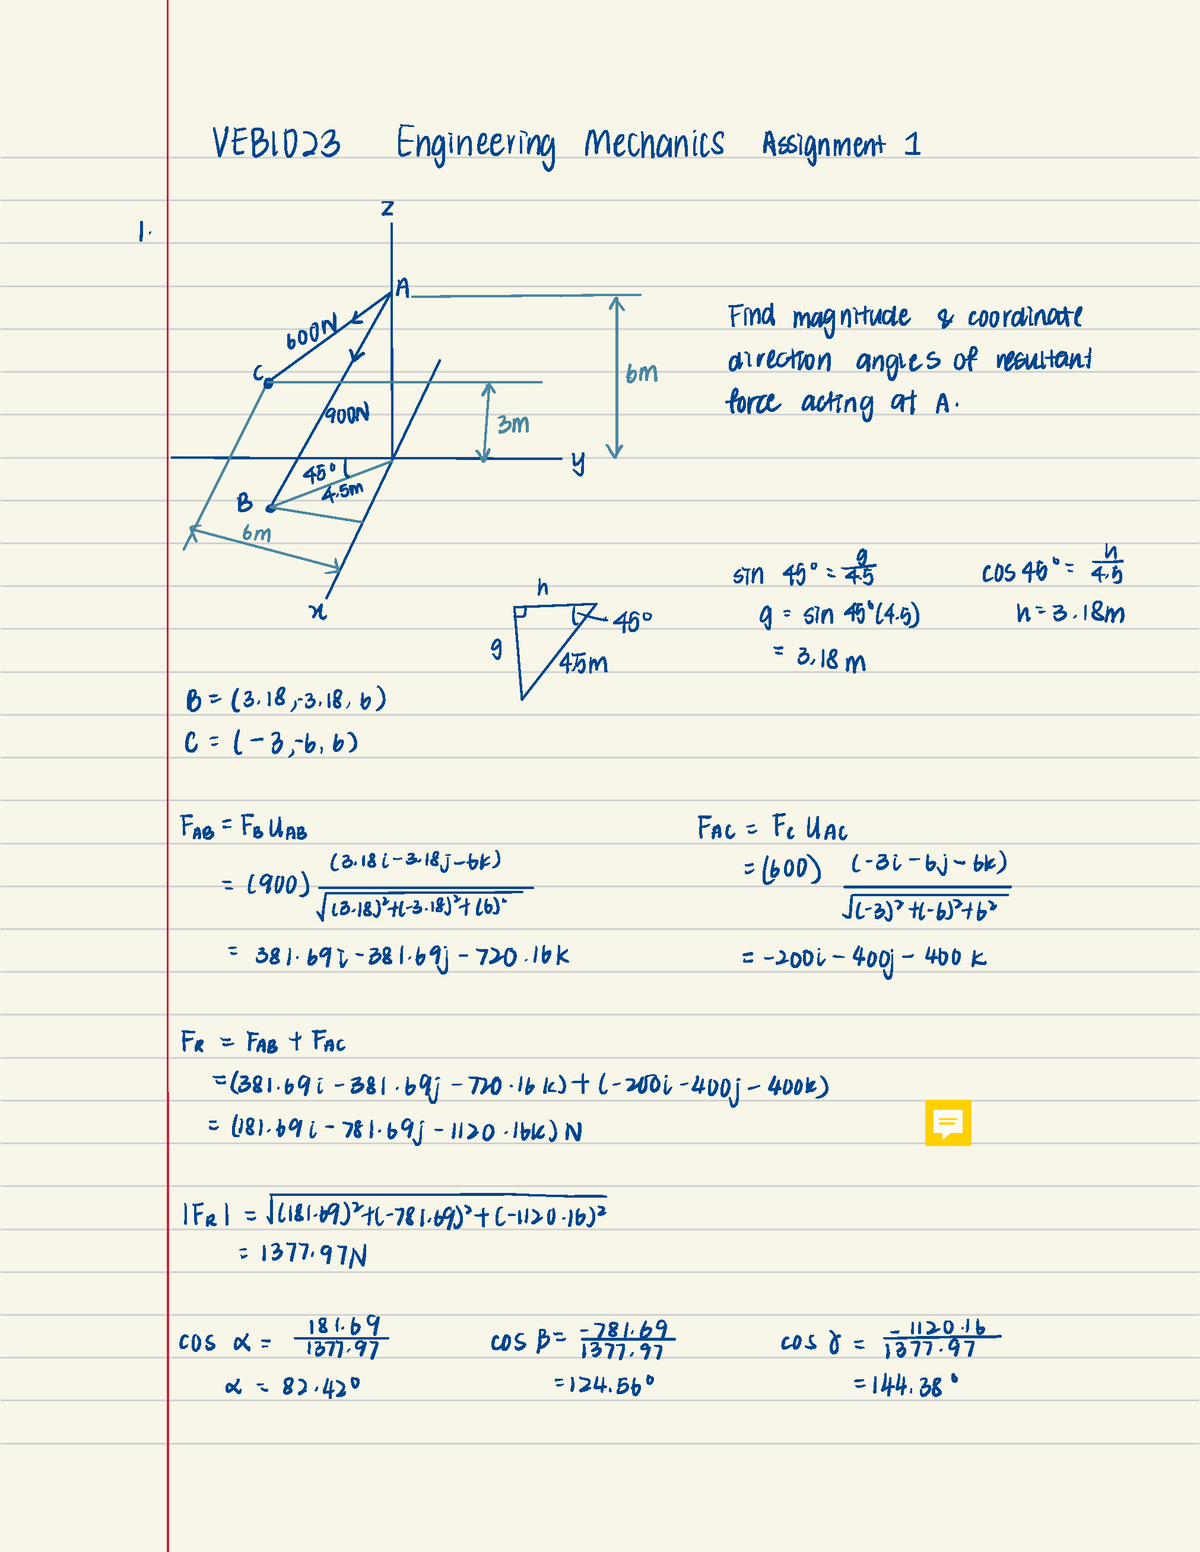 VEB1023 Engineering Mechanics Assignment 1
1.
z
A
600N
C
900N
6m
3m
y
45°
4.5m
B
6m
x
Find magnitude & coordinate
direction angles of resultant
force acting at A.
h
45°
g
4.5m
sin 45° = g/4.5
g = sin 45°(4.5)
= 3.18 m
cos 45° = h/4.5
h = 3.18m
B = (3.18,-3.18, 6)
C = (-3,-6, 6)
FAB = FB UAB
= (900) (3.18i - 3.18j - 6k) / √(3.18)²+(-3.18)²+(6)²
= 381.69i - 381.69j - 720.16k
FAC = FC UAC
= (600) (-3i - 6j - 6k) / √(-3)²+(-6)²+6²
= -200i - 400j - 400k
FR = FAB + FAC
= (381.69i - 381.69j - 720.16k) + (-200i - 400j - 400k)
= (181.69i - 781.69j - 1120.16k) N
|FR| = √(181.69)²+(-781.69)²+(-1120.16)²
= 1377.97N
cos α = 181.69/1377.97
α = 82.42°
cos β = -781.69/1377.97
= 124.56°
cos γ = -1120.16/1377.97
= 144.38°